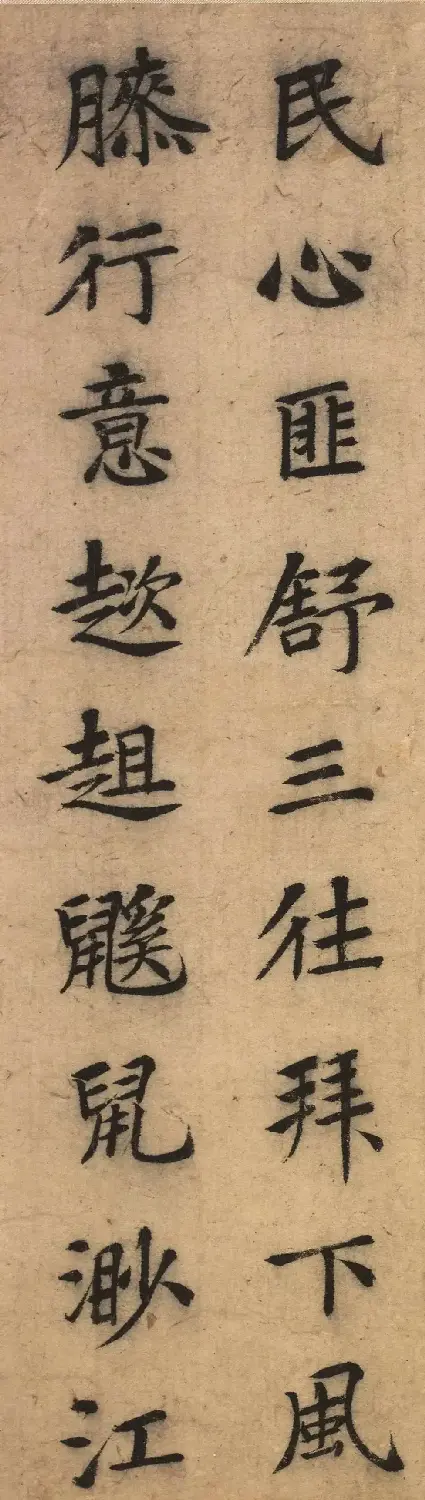 民心匪舒三往拜下風
膝行意趑趄鼷鼠渺江